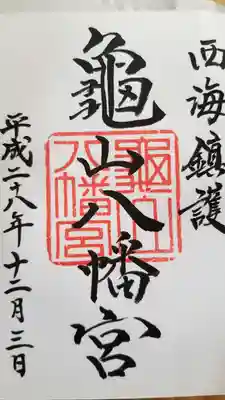 西海鎮護
龜山八幡宮
平成二十八年十二月三日
龜山八幡宮